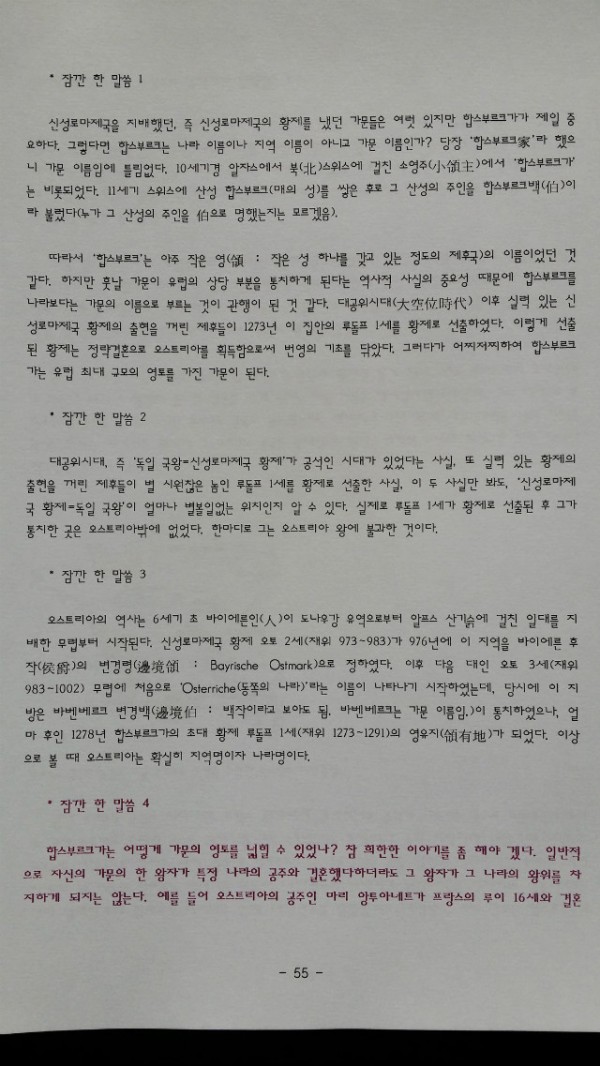 * 잠깐 한 말씀 1
신성로마제국을 지배했던, 즉 신성로마제국의 황제를 냈던 가문들은 여럿 있지만 합스부르크가가 제일 중
요하다. 그렇다면 합스부르크는 나라 이름이나 지역 이름이 아니고 가문 이름인가? 당장 '합스부르크家'라 했으
니 가문 이름임에 틀림없다. 10세기경 알자스에서 북(北)스위스에 걸친 소영주(小領主)에서 '합스부르크가'
는 비롯되었다. 11세기 스위스에 산성 합스부르크(매의 성)를 쌓은 후로 그 산성의 주인을 합스부르크백(伯)이
라 불렀다(누가 그 산성의 주인을 伯으로 명했는지는 모르겠음).
따라서 '합스부르크'는 아주 작은 영(領 : 작은 성 하나를 갖고 있는 정도의 제후국)의 이름이었던 것
같다. 하지만 훗날 가문이 유럽의 상당 부분을 통치하게 된다는 역사적 사실의 중요성 때문에 합스부르크를
나라보다는 가문의 이름으로 부르는 것이 관행이 된 것 같다. 대공위시대(大空位時代) 이후 실력 있는 신
성로마제국 황제의 출현을 꺼린 제후들이 1273년 이 집안의 루돌프 1세를 황제로 선출하였다. 이렇게 선출
된 황제는 정략결혼으로 오스트리아를 획득함으로써 번영의 기초를 닦았다. 그러다가 어찌저찌하여 합스부르크
가는 유럽 최대 규모의 영토를 가진 가문이 된다.
* 잠깐 한 말씀 2
대공위시대, 즉 '독일 국왕=신성로마제국 황제'가 공석인 시대가 있었다는 사실, 또 실력 있는 황제의
출현을 꺼린 제후들이 별 시원찮은 놈인 루돌프 1세를 황제로 선출한 사실, 이 두 사실만 봐도, '신성로마제
국 황제=독일 국왕'이 얼마나 별볼일없는 위치인지 알 수 있다. 실제로 루돌프 1세가 황제로 선출된 후 그가
통치한 곳은 오스트리아밖에 없었다. 한마디로 그는 오스트리아 왕에 불과한 것이다.
* 잠깐 한 말씀 3
오스트리아의 역사는 6세기 초 바이에른인(人)이 도나우강 유역으로부터 알프스 산기슭에 걸친 일대를 지
배한 무렵부터 시작된다. 신성로마제국 황제 오토 2세(재위 973~983)가 976년에 이 지역을 바이에른 후
작(侯爵)의 변경령(邊境領 : Bayrische Ostmark)으로 정하였다. 이후 다음 대인 오토 3세(재위
983~1002) 무렵에 처음으로 'Osterriche(동쪽의 나라)'라는 이름이 나타나기 시작하였는데, 당시에 이 지
방은 바벤베르크 변경백(邊境伯 : 백작이라고 보아도 됨. 바벤베르크는 가문 이름임.)이 통치하였으나, 얼
마 후인 1278년 합스부르크가의 초대 황제 루돌프 1세(재위 1273~1291)의 영유지(領有地)가 되었다. 이상
으로 볼 때 오스트리아는 확실히 지역명이자 나라명이다.
* 잠깐 한 말씀 4
합스부르크가는 어떻게 가문의 영토를 넓힐 수 있었나? 참 희한한 이야기를 좀 해야 겠다. 일반적
으로 자신의 가문의 한 왕자가 특정 나라의 공주와 결혼했다하더라도 그 왕자가 그 나라의 왕위를 차
지하게 되지는 않는다. 예를 들어 오스트리아의 공주인 마리 앙투아네트가 프랑스의 루이 16세와 결혼
- 55 -